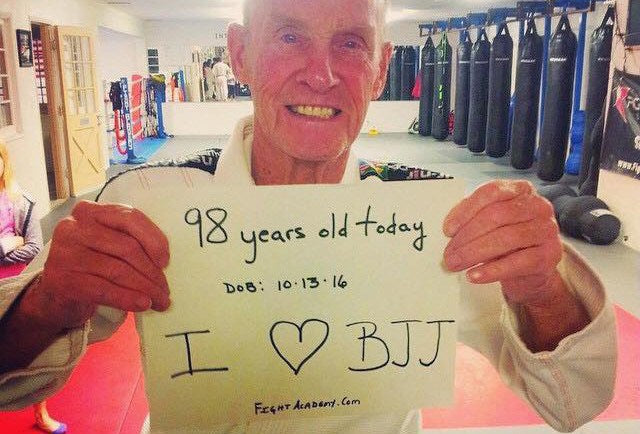 98 years old today
DOB: 10·13·16
I ♡ BJJ
FIGHT ACADEMY.Com